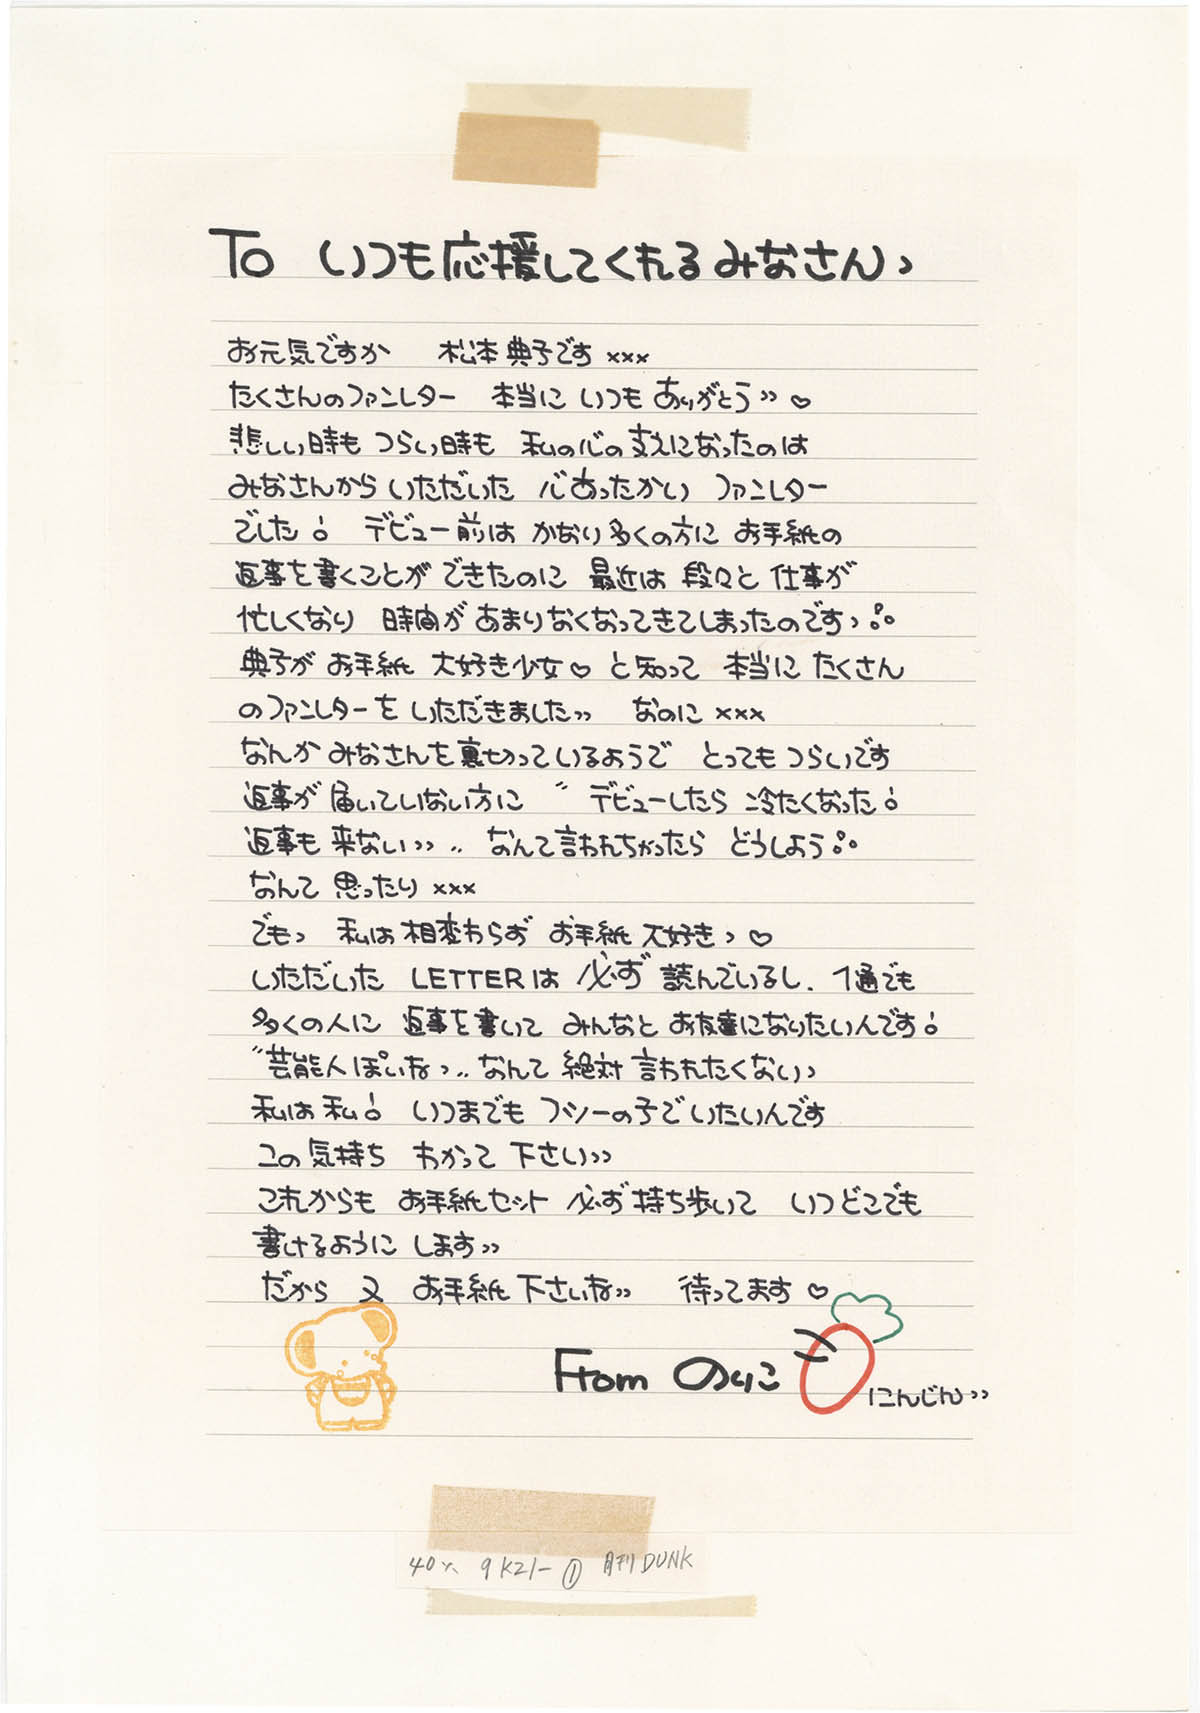 To いつも応援してくれるみなさんっ
お元気ですか 松本典子です xxx
たくさんのファンレター 本当に いつも ありがとうっっ ♡
悲しい時も つらい時も 私の心の支えになったのは
みなさんから いただいた 心あったかい ファンレター
でした! デビュー前は かなり多くの方に お手紙の
返事を書くことが できたのに 最近は 段々と 仕事が
忙しくなり 時間が あまりなくなってきてしまったのですっ
典子が お手紙 大好き少女♡ と知って 本当に たくさん
のファンレターを いただきましたっっ なのに xxx
なんか みなさんを裏切っているようで とってもつらいです
返事が 届いていない方に "デビューしたら 冷たくなった!
返事も 来ないっっ" なんて言われちゃったら どうしよう
なんて 思ったり xxx
でもっ 私は相変わらず お手紙 大好きっ ♡
いただいた LETTERは 必ず 読んでいるし、1通でも
多くの人に 返事を書いて みんなと お友達になりたいんです!
"芸能人ぽいなっ" なんて 絶対 言われたくないっ
私は私! いつまでも フツーの子で いたいんです
この気持ち わかって 下さいっっ
これからも お手紙セット 必ず持ち歩いて いつどこでも
書けるように しますっっ
だから 又 お手紙 下さいなっっ 待ってます ♡
From のりこ
にんじんっっ
40% 9K21-① 月刊DUNK